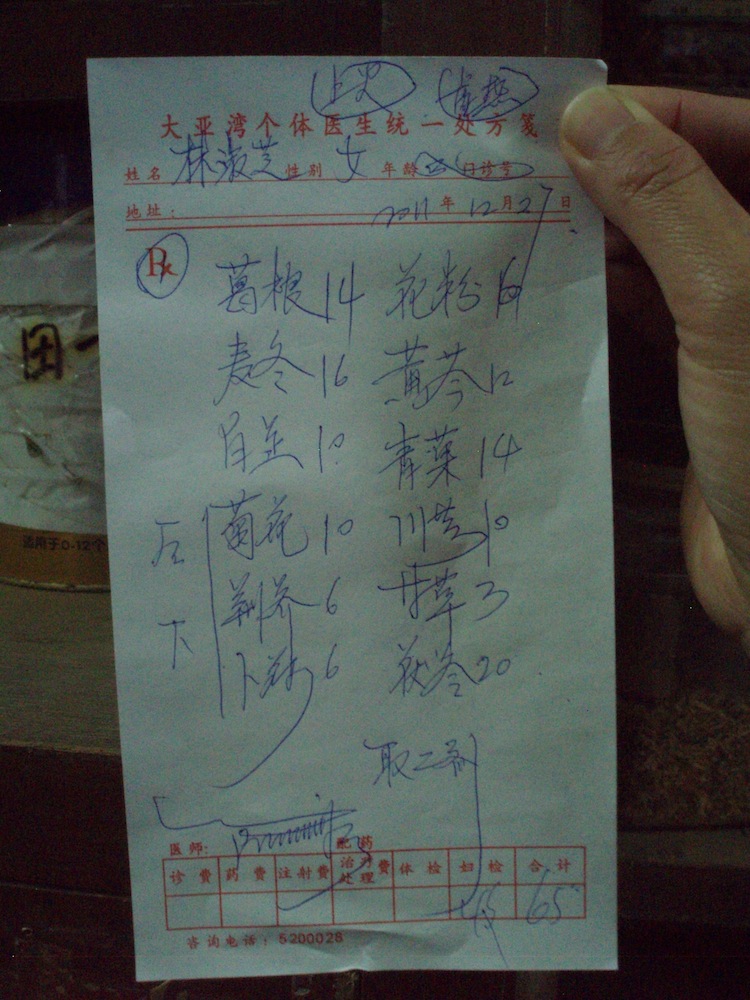 上火
大亚湾个体医生统一处方笺
姓名 林淑芝 性别 女 年龄 门诊号
地址: 2011年12月27日
Rx
葛根14 花粉
麦冬16 黄芩12
白芷10 青叶14
菊花10 川芎10
荆芥6 甘草3
6 茯苓20
后下
取二剂
医师: 配药
诊费 药费 注射费 治疗处理费 体检 妇检 合计
65
咨询电话:5200028
团一
适用于0-12个